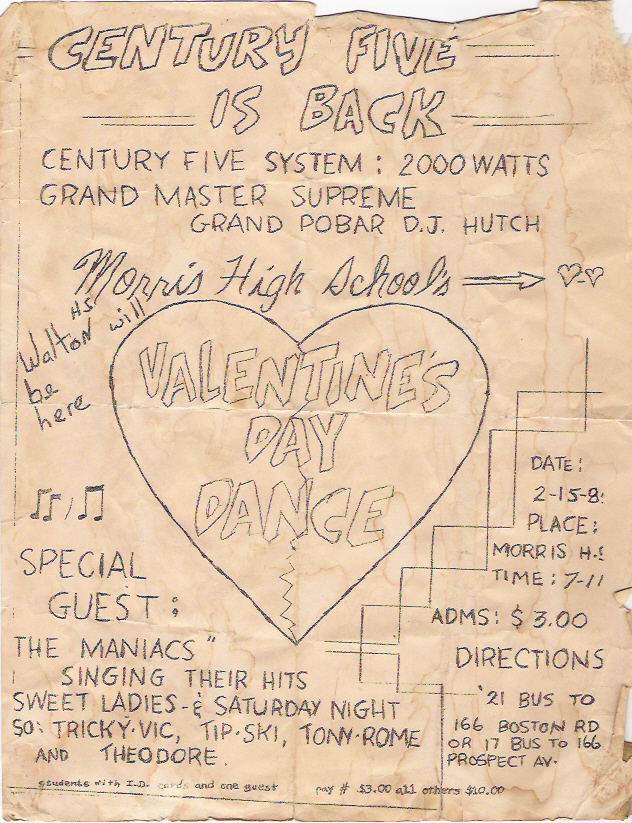 CENTURY FIVE
IS BACK
CENTURY FIVE SYSTEM : 2000 WATTS
GRAND MASTER SUPREME
GRAND POBAR D.J. HUTCH
Morris High School's
Walton HS will
be
here
VALENTINE'S
DAY
DANCE
SPECIAL
GUEST :
THE MANIACS "
SINGING THEIR HITS
SWEET LADIES - & SATURDAY NIGHT
SO: TRICKY-VIC, TIP-SKI, TONY-ROME
AND THEODORE.
DATE:
2-15-8
PLACE:
MORRIS H.S
TIME : 7-11
ADMS: $ 3.00
DIRECTIONS
'21 BUS TO
166 BOSTON RD
OR 17 BUS TO 166
PROSPECT AV.
students with I.D. cards and one guest pay # $3.00 all others $10.00